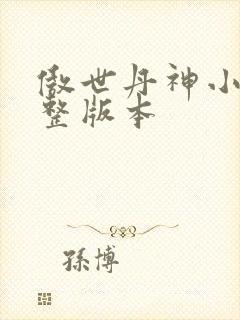 傲世丹神小
整版本
孫博